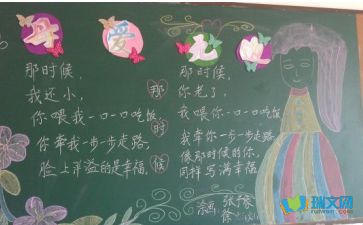 母爱
那时候
那时候，
我还小，
你喂我一口一口吃饭
你牵我一步一步走路，
脸上洋溢的是幸福。
那时候，
你老了，
我喂你一口一口吃饭
我牵你一步一步走路
像那时候的你，
同样写满幸福。
绘画：张
徐
瑞文网
ruiwen.com